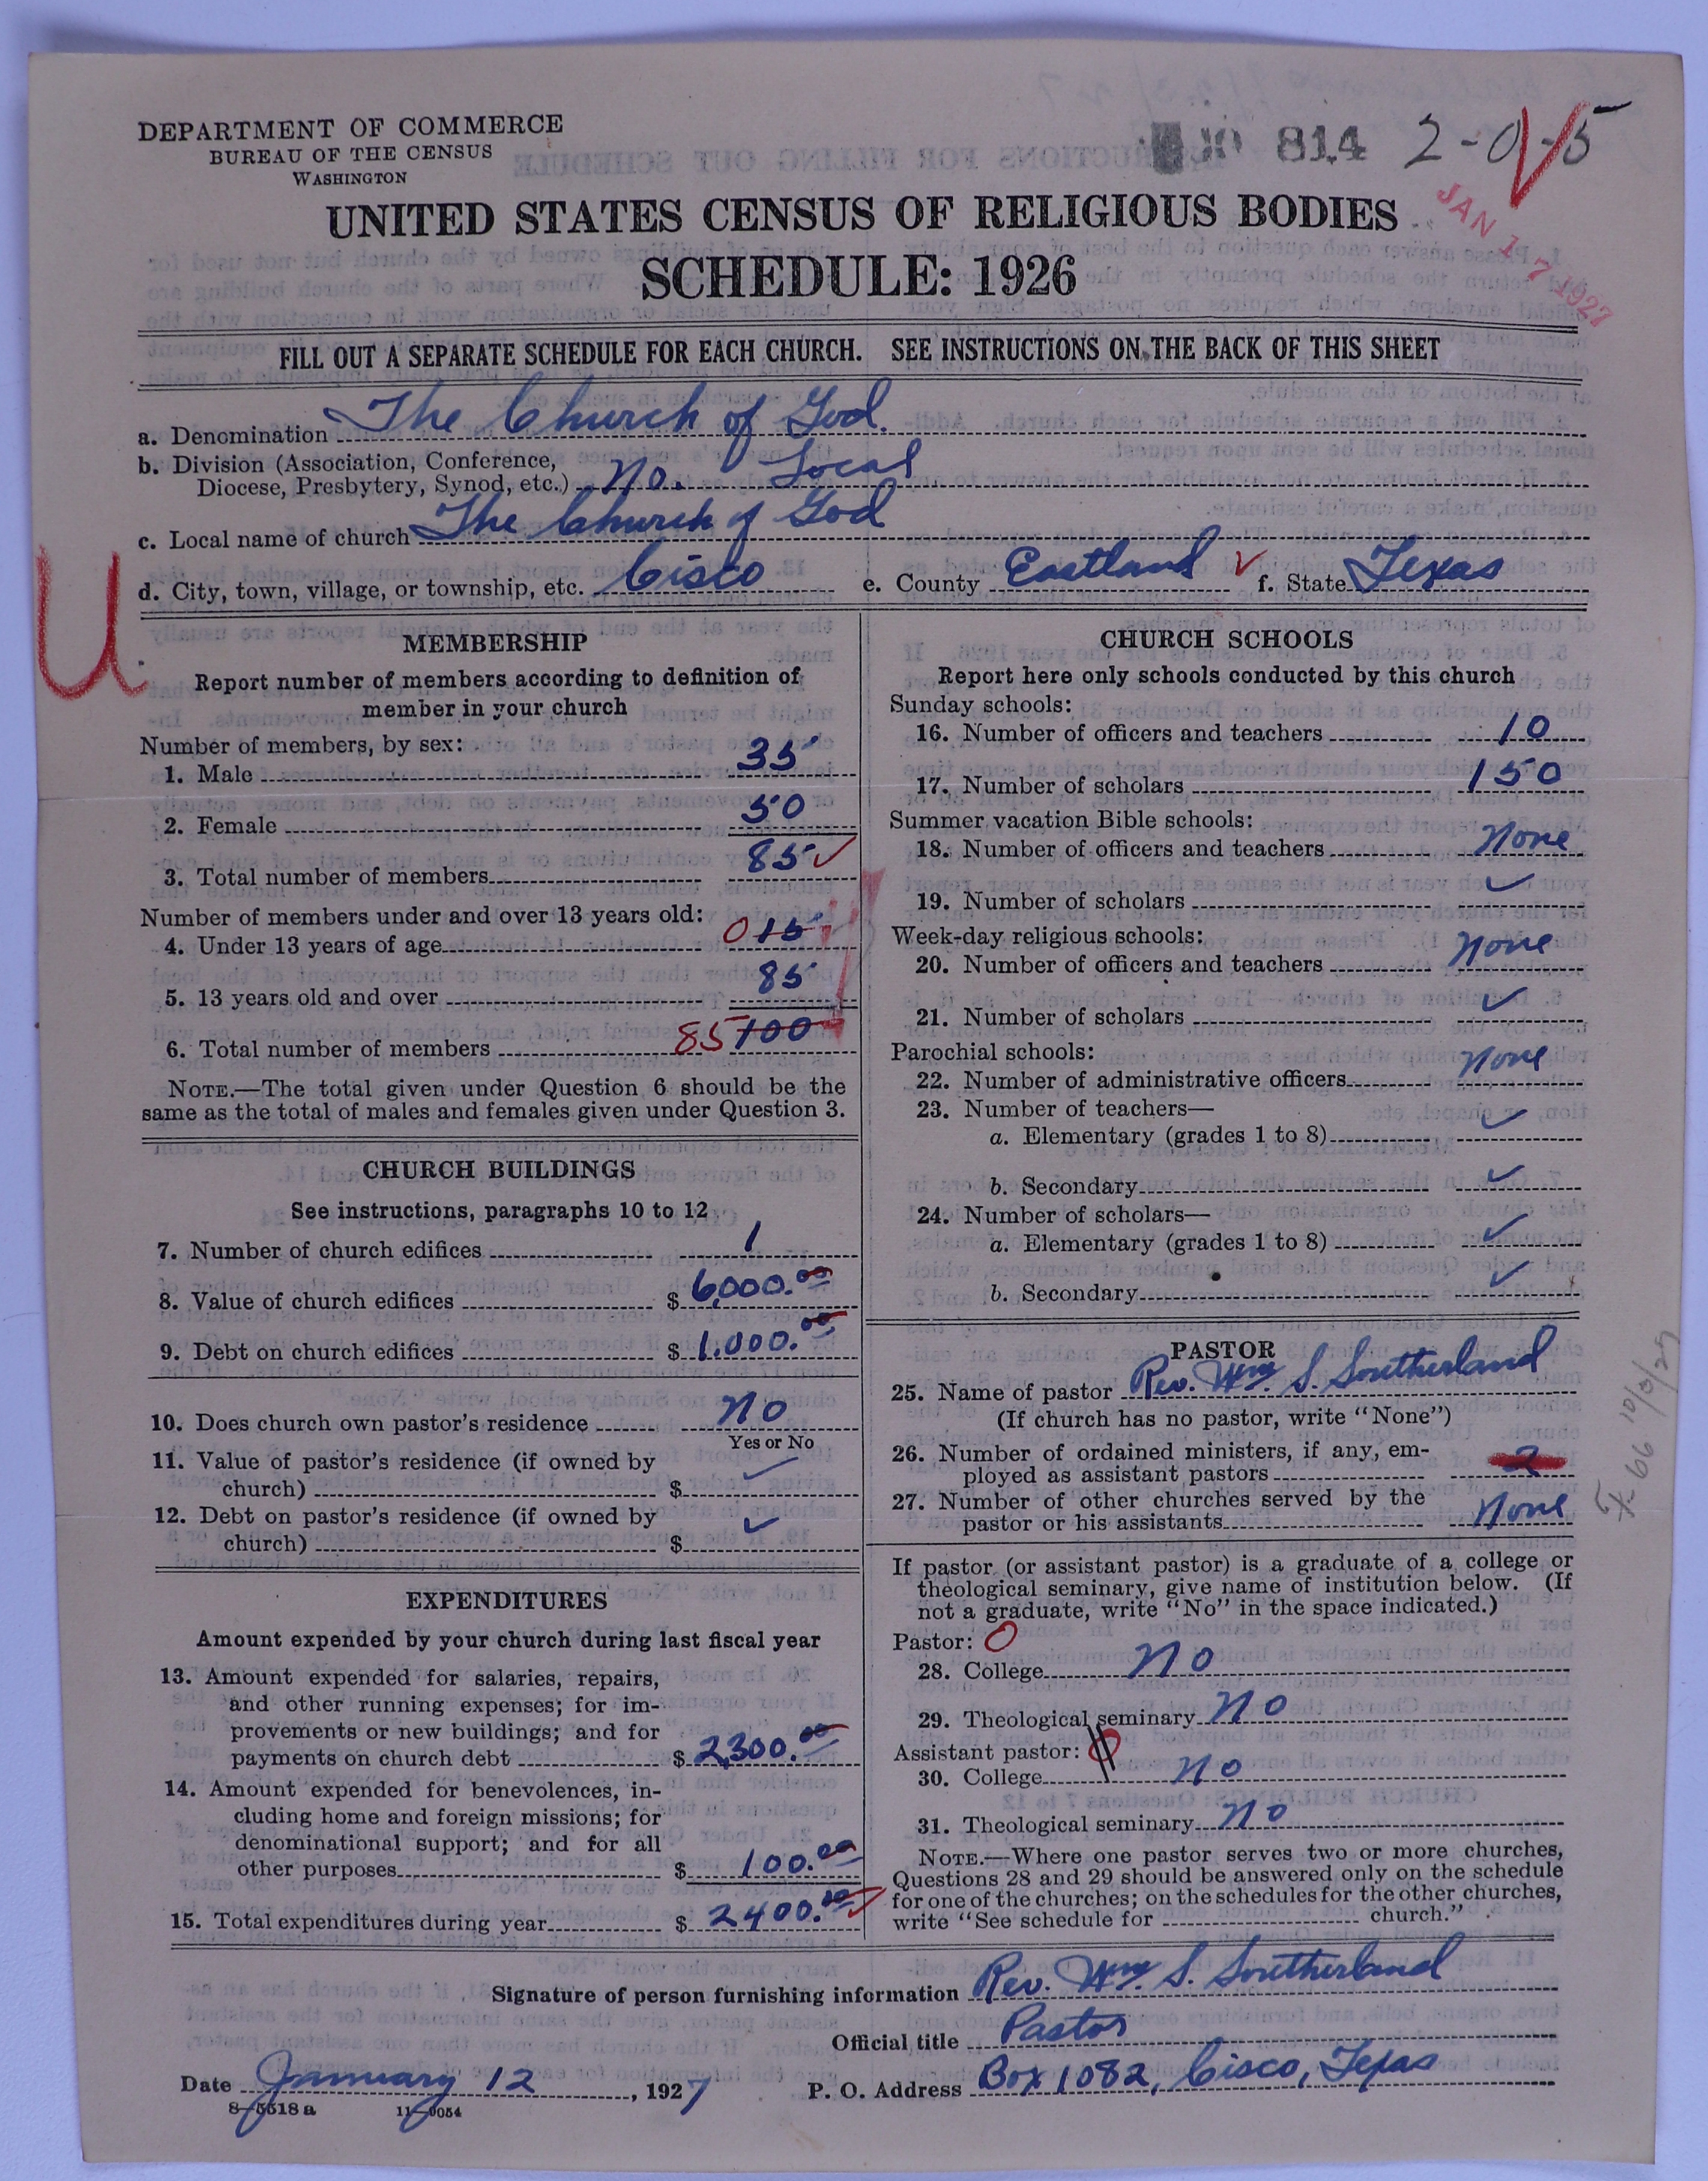 DEPARTMENT OF COMMERCE
BUREAU OF THE CENSUS
WASHINGTON
814 2-0-5
JAN 17 1927
UNITED STATES CENSUS OF RELIGIOUS BODIES
SCHEDULE: 1926
FILL OUT A SEPARATE SCHEDULE FOR EACH CHURCH. SEE INSTRUCTIONS ON THE BACK OF THIS SHEET
a. Denomination The Church of God.
b. Division (Association, Conference,
Diocese, Presbytery, Synod, etc.) No. Local
c. Local name of church The Church of God
d. City, town, village, or township, etc. Cisco e. County Eastland f. State Texas
U
MEMBERSHIP
Report number of members according to definition of
member in your church
Number of members, by sex:
1. Male 35
2. Female 50
3. Total number of members 85
Number of members under and over 13 years old:
4. Under 13 years of age 0 15
5. 13 years old and over 85
6. Total number of members 85 100
NOTE.—The total given under Question 6 should be the
same as the total of males and females given under Question 3.
CHURCH BUILDINGS
See instructions, paragraphs 10 to 12
7. Number of church edifices 1
8. Value of church edifices $ 6,000.00
9. Debt on church edifices $ 1,000.00
10. Does church own pastor's residence No
Yes or No
11. Value of pastor's residence (if owned by
church) $ ✓
12. Debt on pastor's residence (if owned by
church) $ ✓
EXPENDITURES
Amount expended by your church during last fiscal year
13. Amount expended for salaries, repairs,
and other running expenses; for im-
provements or new buildings; and for
payments on church debt $ 2,300.00
14. Amount expended for benevolences, in-
cluding home and foreign missions; for
denominational support; and for all
other purposes $ 100.00
15. Total expenditures during year $ 2400.00
CHURCH SCHOOLS
Report here only schools conducted by this church
Sunday schools:
16. Number of officers and teachers 10
17. Number of scholars 150
Summer vacation Bible schools:
18. Number of officers and teachers None
19. Number of scholars ✓
Week-day religious schools:
20. Number of officers and teachers None
21. Number of scholars ✓
Parochial schools:
22. Number of administrative officers None
23. Number of teachers—
a. Elementary (grades 1 to 8) ✓
b. Secondary ✓
24. Number of scholars—
a. Elementary (grades 1 to 8) ✓
b. Secondary ✓
PASTOR
25. Name of pastor Rev. Wm. S. Southerland
(If church has no pastor, write "None")
26. Number of ordained ministers, if any, em-
ployed as assistant pastors 2
27. Number of other churches served by the
pastor or his assistants None
If pastor (or assistant pastor) is a graduate of a college or
theological seminary, give name of institution below. (If
not a graduate, write "No" in the space indicated.)
Pastor: 0
28. College No
29. Theological seminary No
Assistant pastor: 0
30. College No
31. Theological seminary No
NOTE.—Where one pastor serves two or more churches,
Questions 28 and 29 should be answered only on the schedule
for one of the churches; on the schedules for the other churches,
write "See schedule for church."
Signature of person furnishing information Rev. Wm. S. Southerland
Official title Pastor
Date January 12, 1927 P. O. Address Box 1082, Cisco, Texas
8—5518 a 11—9054